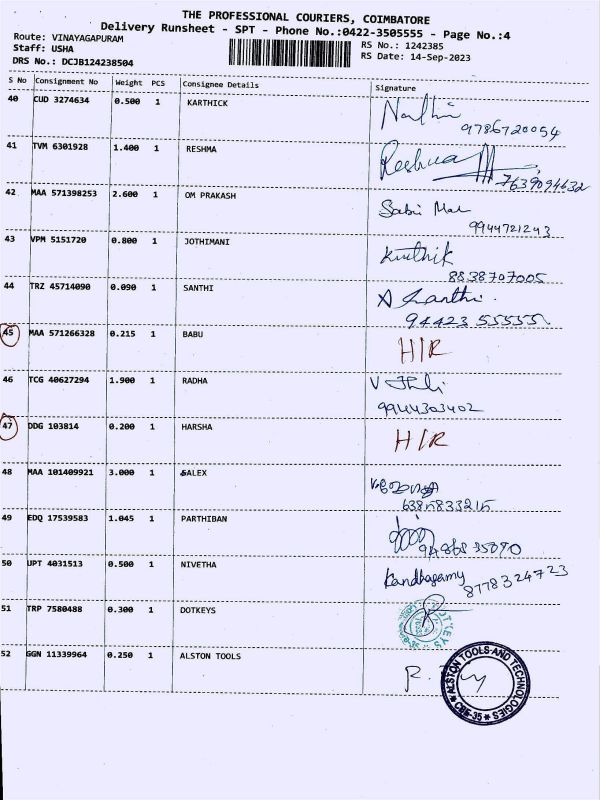 THE PROFESSIONAL COURIERS, COIMBATORE
Delivery Runsheet - SPT - Phone No.:0422-3505555 - Page No.:4
Route: VINAYAGAPURAM
Staff: USHA
DRS No.: DCJB124238504
RS No.: 1242385
RS Date: 14-Sep-2023
S No Consignment No Weight PCS Consignee Details Signature
40 CUD 3274634 0.500 1 KARTHICK
9786720054
41 TVM 6301928 1.400 1 RESHMA Reshma
7639094632
42 MAA 571398253 2.600 1 OM PRAKASH
9944721243
43 VPM 5151720 0.800 1 JOTHIMANI Karthik
8838707005
44 TRZ 45714090 0.090 1 SANTHI A Shanthi.
94423 55555
45 MAA 571266328 0.215 1 BABU H/R
46 TCG 40627294 1.900 1 RADHA
9944303402
47 DDG 103814 0.200 1 HARSHA H/R
48 MAA 101409921 3.000 1 SALEX
6385833215
49 EDQ 17539583 1.045 1 PARTHIBAN
50 UPT 4031513 0.500 1 NIVETHA Kandhasamy
8778324723
51 TRP 7580488 0.300 1 DOTKEYS
52 GGN 11339964 0.250 1 ALSTON TOOLS
ALSTON TOOLS AND TECHNOLOGIES
CBE-35